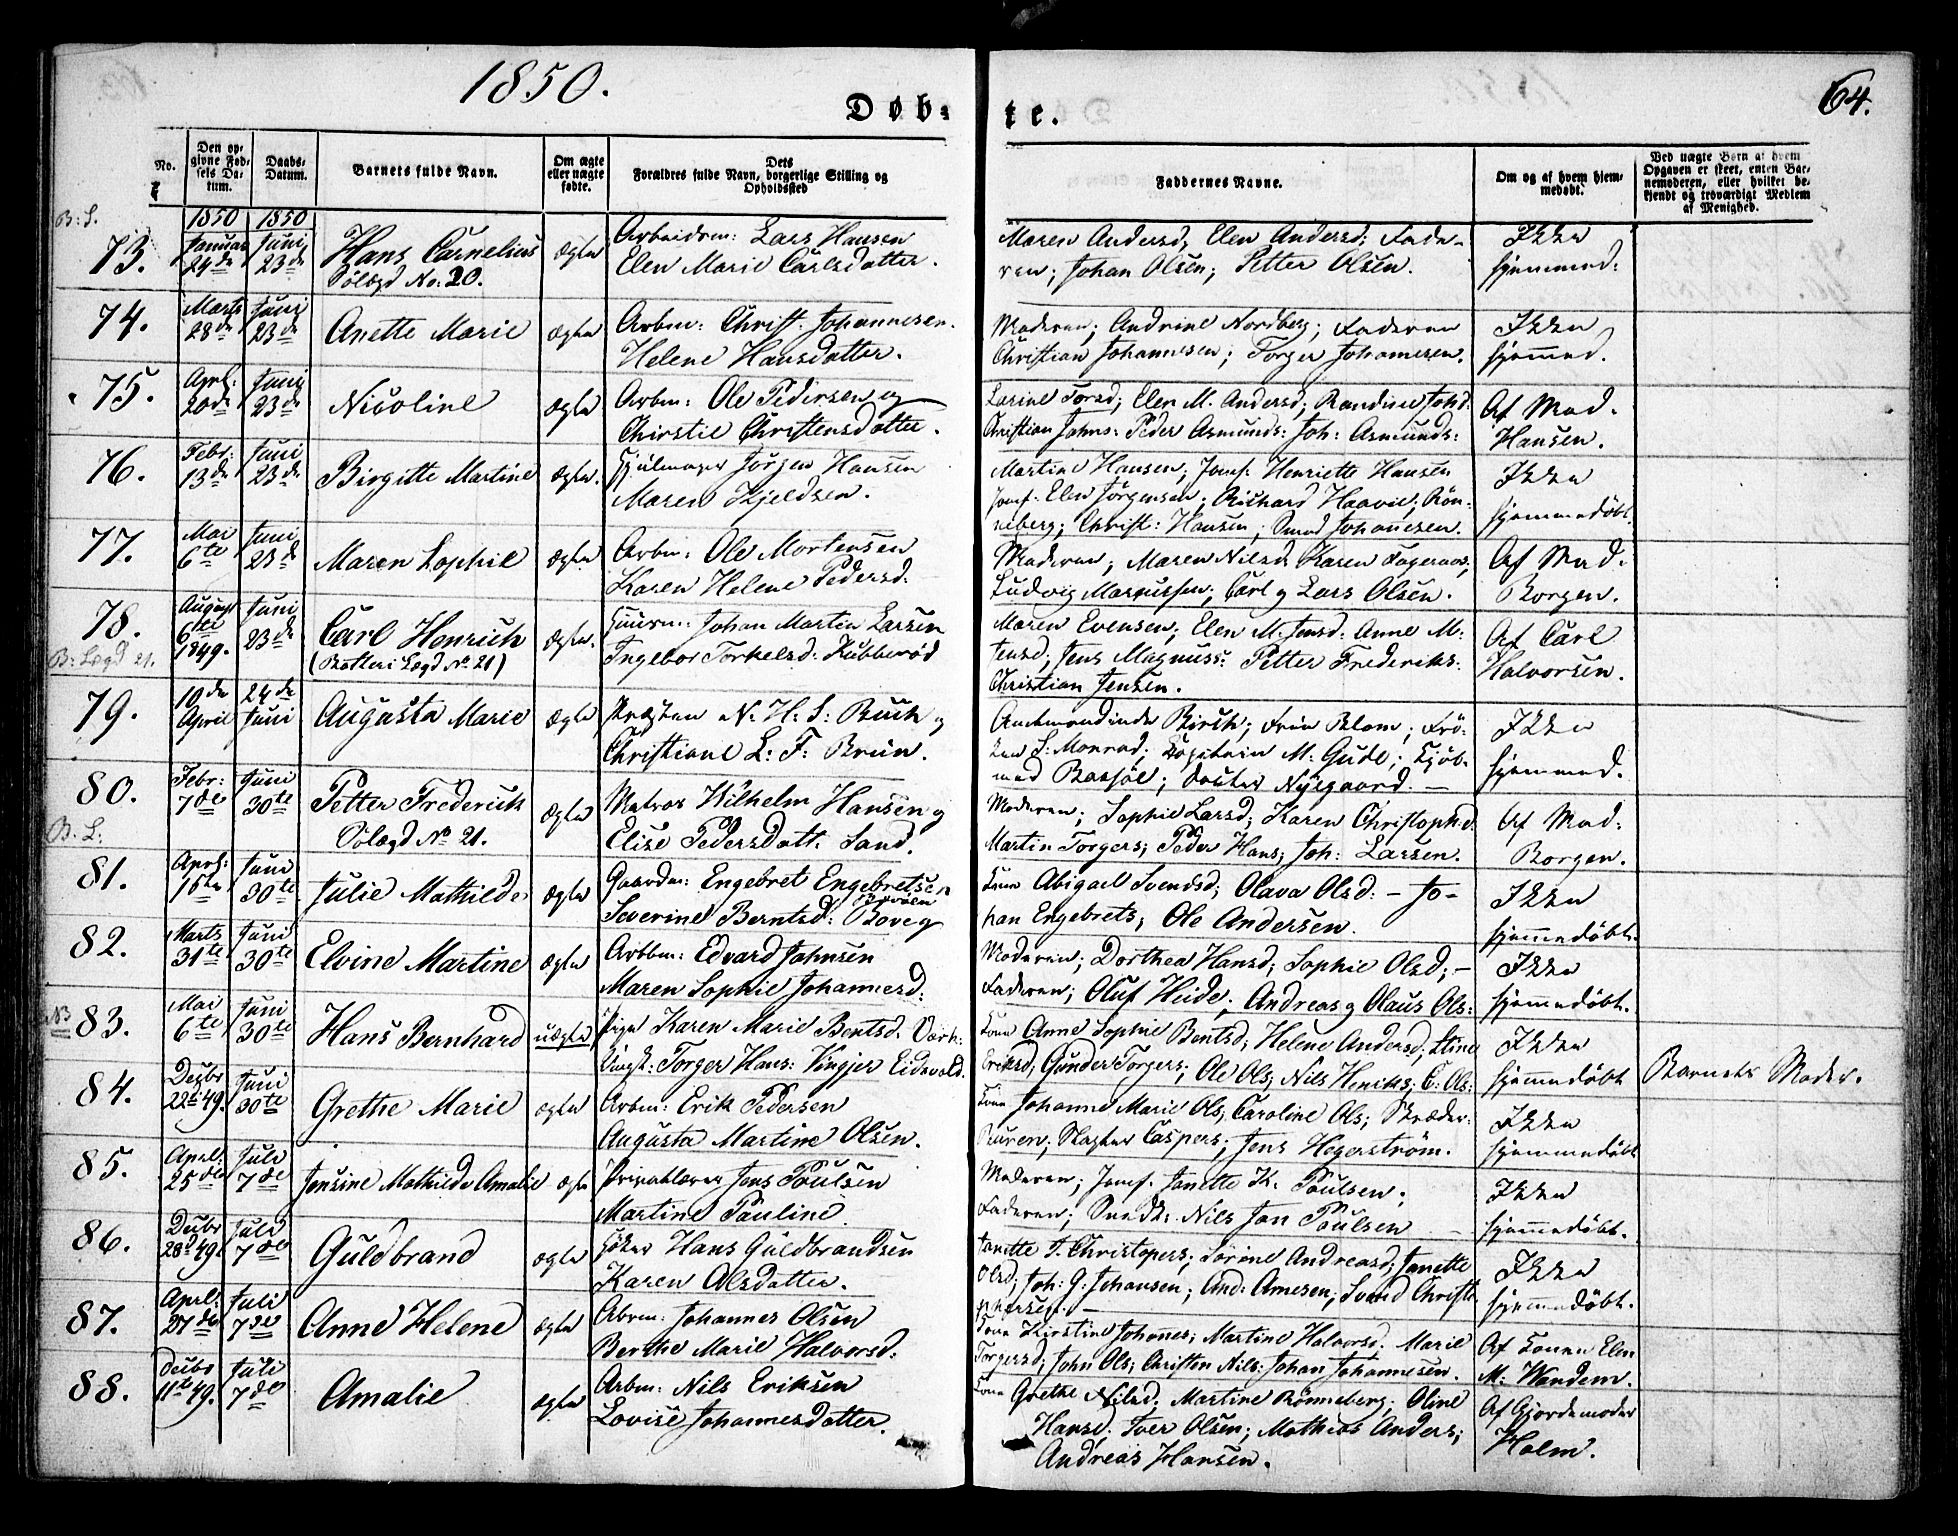 1850.
Døb-
te.
64.
No.
Den op-
givne Fød-
sels Da-
tum.
Daabs-
Datum.
Barnets fulde Navn.
Om ægte
eller uægte
fødte.
Dets
Forældres fulde Navn, borgerlige Stilling og
Opholdssted
Faddernes Navne.
Om og af hvem hjem-
medøbt.
Ved uægte Børn af hvem
Opgaven er skeet, enten Bar-
nemoderen, eller hvilket be-
kjendt og troværdigt Medlem
af Menighed.
1850 1850
73.
Januar
24de
Juni
23de
Hans Carnelius
Sölægd No: 20.
ægte
Arbeidsm: Lars Hansen
Elen Marie Carlsdatter.
Maren Andersd; Elen Andersd; Fade-
ren; Johan Olsen; Petter Olsen.
Ikke
hjemmed:
74.
Marts
28de
Juni
23de
Anette Marie
ægte
Arbm: Christ. Johannesen.
Helene Hansdatter.
Moderen; Andrine Nordberg; Faderen
Christian Johannesen; Torger Johannesen.
Ikke
hjemmed.
75.
Apri:
20de
Juni
23de
Nicoline
ægte
Arbm: Ole Pedersen og
Chirstie Christensdatter.
Elen M. Andersd; Randine Johd.
Christian Johns: Peder Asmunds: Joh: Asmunds:
Af Mad.
Hansen.
76.
Febr:
13de
Juni
23de
Birgitte Martine
ægte.
Hjulmager Jörgen Hansen
Maren Kjeldsen.
Martine Hansen; Jomf: Henriette Hansen
Jomf: Elen Jörgensen; Richard Haavie; Rön-
neberg; Christ: Hansen; Svend Johannesen.
Ikke
hjemmedöbt.
77.
Mai
6te
Juni
23de
Maren Sophie
ægte
Arbm: Ole Mortensen
Karen Helene Pedersd:
Moderen; Maren Nilsd; Karen Fageraas;
Ludvig Marcussen; Carl og Lars Olsen.
Af Mad.
Borgen.
78.
B: Lægd 21.
August
6te
1849.
Juni
23de
Carl Henrich
(Rotteri Lægd No 21)
ægte.
Huusm: Johan Martin Larsen
Ingebor Torkelsd: Kubberöd
Maren Evensen; Elen M. Jensd: Anne M:
Jensd; Jens Magnuss: Petter Frederiks:
Christian Jensen.
Af Carl
Halvorsen.
79.
10de
April
24de
Juni
Augusta Marie
ægte
Præsten N: H: S: Buch og
Christiane L: F: Brun.
Amtmandinde Birch; Frue Blom; Frö-
ken S: Monrad; Capitain M: Gude; Kjöb-
mand Bassöe; Doctor Nysgaard. —
Ikke
hjemmed.
80.
B. L:
Febr:
7de
Juni
30te
Petter Frederich
Sölægd No 21.
ægte
Matros Wilhelm Hansen og
Elise Pedersdatt: Sand.
Moderen; Sophie Larsd; Karen Christophd.
Martin Torgers; Peder Hans; Joh: Larsen.
Af Mad:
Borgen.
81.
Apri:
15te
Juni
30te
Julie Mathilde
ægte
Gaardm: Engebret Engebretsen
Severine Berntsd:
Kone Abigael Svendsd; Olava Olsd: — Jo-
han Engebrets; Ole Andersen.
Ikke
hjemmedöbt.
82.
Marts
31te
Juni
30te
Elvine Martine
ægte
Arbbm: Edvard Johnsen
Maren Sophie Johannesd:
Moderen; Dorthea Hansd; Sophie Olsd; —
Faderen; Oluf Heide; Andreas og Olaus Ols:
Ikke
hjemmedöbt.
NB
83.
Mai
6te
Juni
30te
Hans Bernhard
uægte
Pige Karen Marie Bentsd. Værk.
Ungk: Torger Hans: Vingjer Eidsvold.
Kone Anne Sophie Bentsd; Helene Andersd; Stine
Eriksd; Gunder Torgers; Ole Ols; Nils Henriks; C: Ols:
Ikke
hjemmedöbt
Barnets Moder.
84.
Decbr
22de 49.
Juni
30te
Grethe Marie
ægte
Arbm: Erik Pedersen
Augusta Martine Olsen.
Kone Johanne Marie Ols; Caroline Ols; Skræder
Buren; Slagter Caspers; Jens Hegerström.
Ikke
hjemmedöbt
85.
Apri:
25de
Juli
7de
Jensine Mathilde Amalie
ægte
Jens Poulsen
Martine Pauline
Moderen; Jomf. Janette K. Poulsen;
Faderen; Nils Jon Poulsen —
Ikke
hjemmedöbt.
86.
Decbr
28d 49.
Juli
7de
Guldbrand
ægte
Höker Hans Guldbrandsen
Karen Olsdatter.
Janette T. Christophers; Sörine Andreasd; Janette
Olsd; Joh: G. Johansen; And: Arnesen; Svend Christo
phersen. —
Ikke
hjemmedöbt.
87.
Apri:
27de
Juli
7de
Anne Helene
ægte
Arbm: Johannes Olsen
Berthe Marie Halvorsd:
Kone Kirstine Johannes; Martine Halvorsd; Marie
Torgersd; John Ols; Christen Nils: Johan Johannesen.
Af Konen Elen
M: Wandem.
88.
Decbr
11te 49.
Juli
7de
Amalie
ægte
Arbm: Nils Eriksen
Lovise Johannesdatter.
Kone Grethe Nilsd; Martine Rönneberg; Oline
Hansd. Iver Olsen; Mathias Anders;
Andreas Hansen.
Af Gjordemoder
Holm.